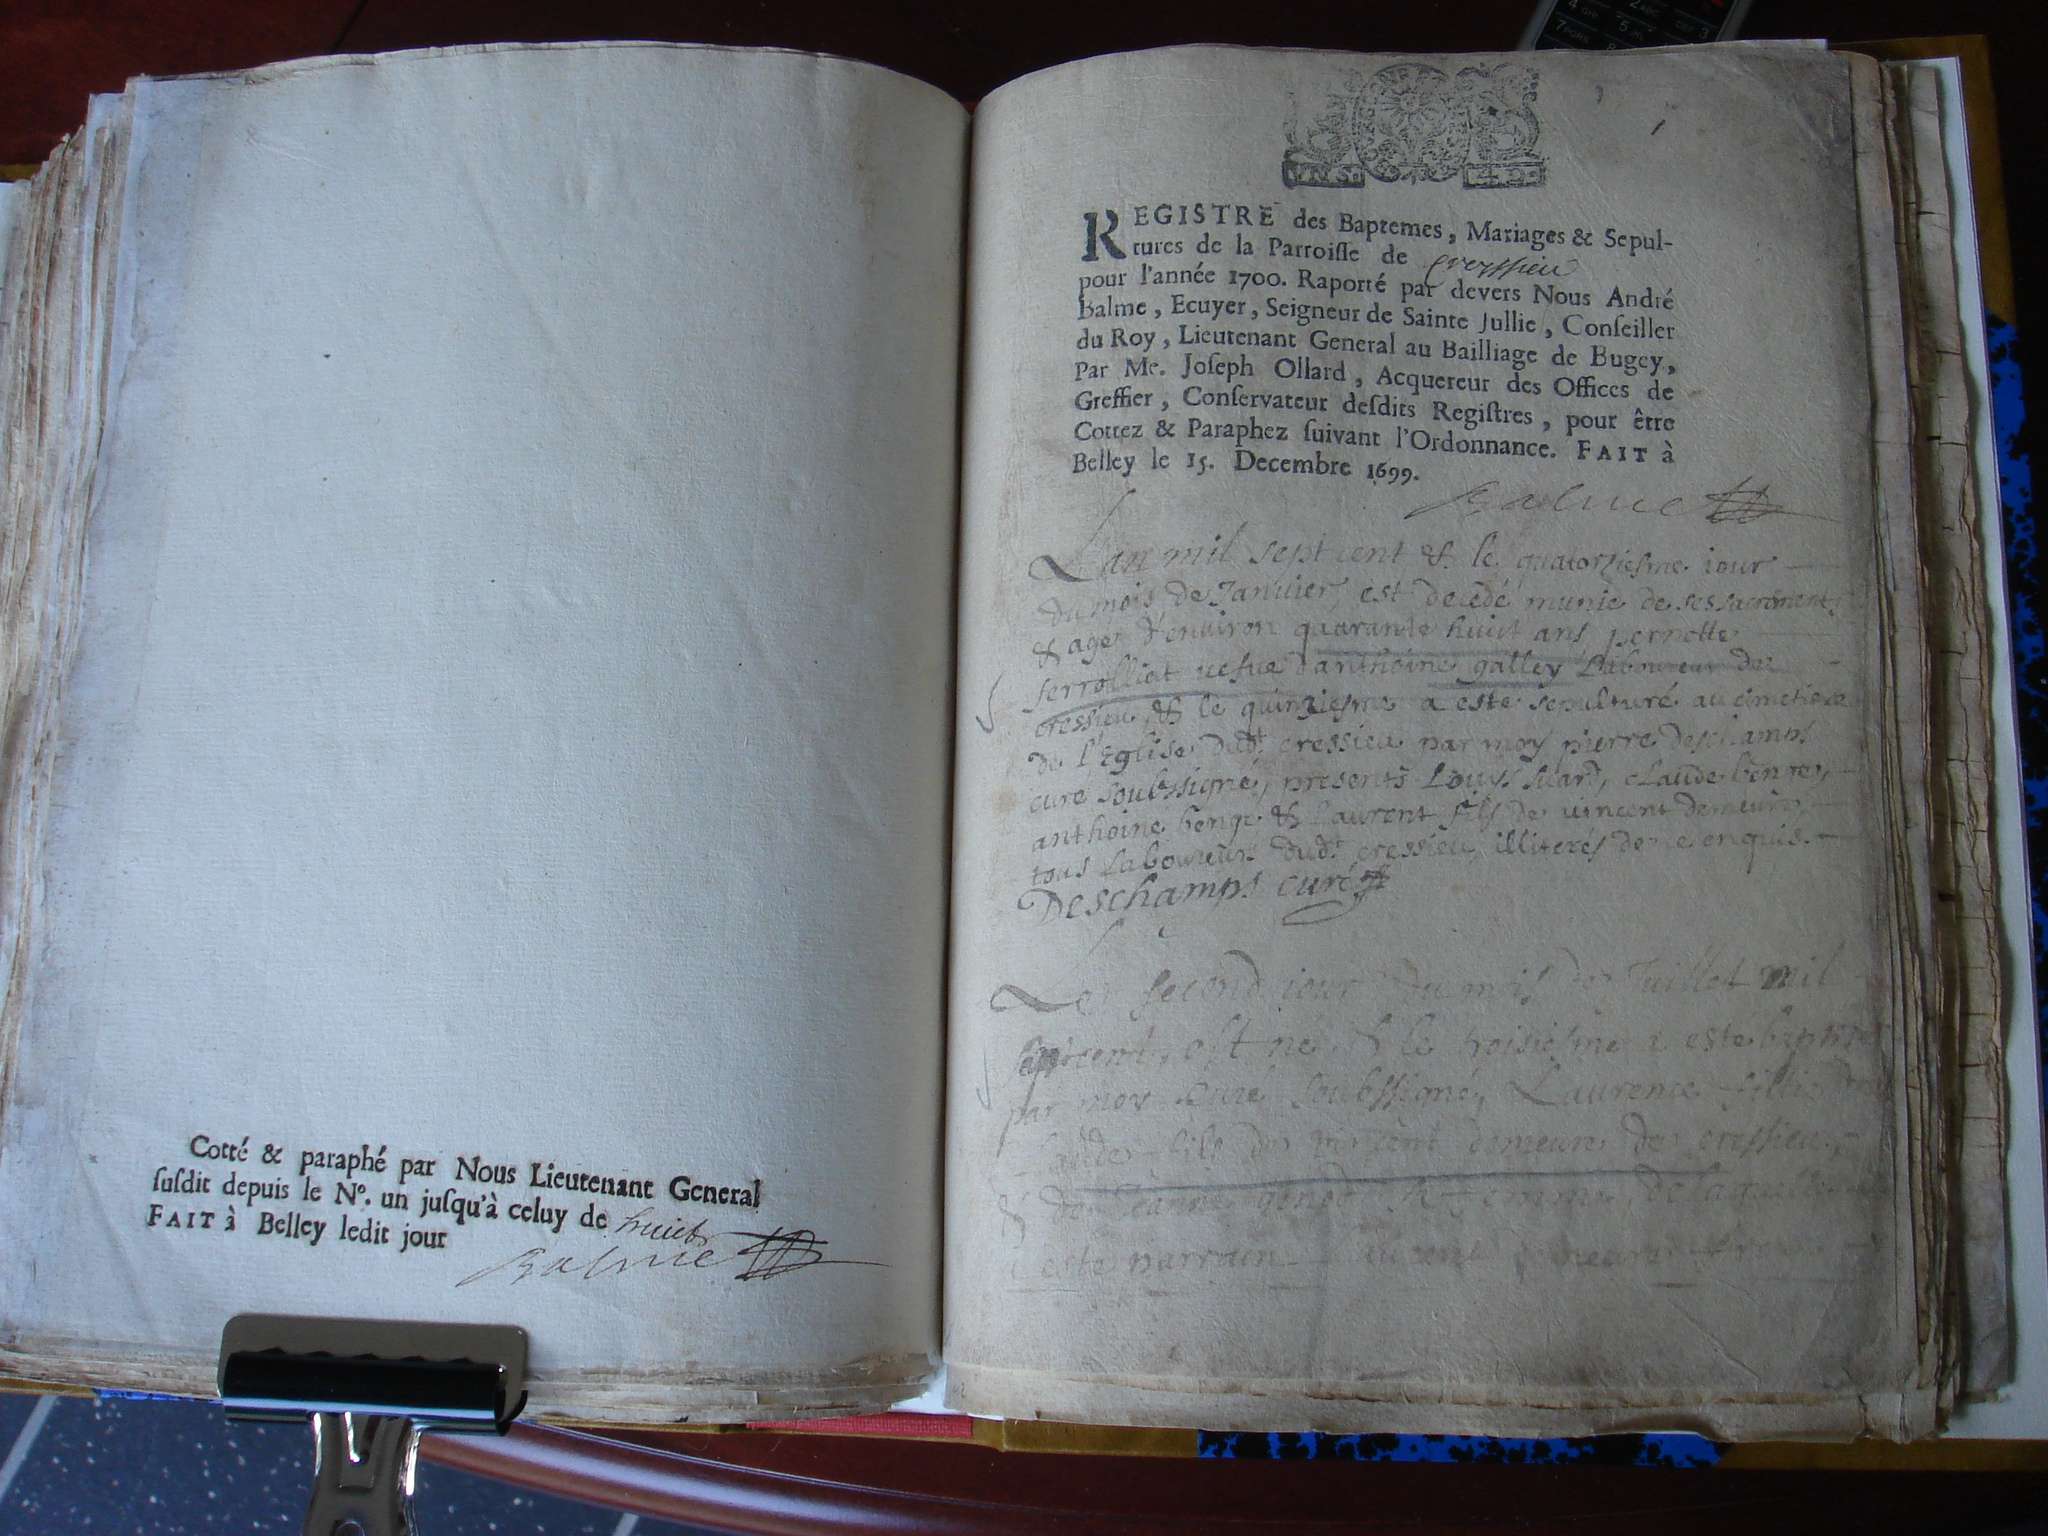 Cotté & paraphé par Nous Lieutenant General
susdit depuis le Nº. un jusqu'à celuy de huict
FAIT à Belley ledit jour
Balme
1
REGISTRE des Baptemes, Mariages & Sepul-
tures de la Parroisse de Cressieu
pour l'année 1700. Raporté par devers Nous André
Balme, Ecuyer, Seigneur de Sainte Jullie, Conseiller
du Roy, Lieutenant General au Bailliage de Bugey,
Par Me. Joseph Ollard, Acquereur des Offices de
Greffier, Conservateur desdits Registres, pour être
Cottez & Paraphez suivant l'Ordonnance. FAIT à
Belley le 15. Decembre 1699.
Balme
Lan mil sept cent & le quatorziesme iour
du mois de Januier, est decedé munie de ses sacrements
& agée d'enuiron quarante huict ans pernette
ferrolliat uefue d'anthoine galley Laboureur de
cressieu, & le quinziesme a esté sepulturé au cimetiere
de l'Eglise dudt cressieu par moy pierre deschamps
curé soubssigné, presents Louys, claude benge,
anthoine benge & laurent fils de vincent demeure,
tous Laboureurs dudt cressieu, illiterés de ce enquis.
Deschamps curé
Le second iour du mois de Juillet mil
sept cent, est né & le troisiesme a esté baptisé
par moy Curé soubssigné, Laurence fillie
claude fils de vincent demeure de cressieu,
& de Jeanne sa femme, de laquelle
a esté parrain